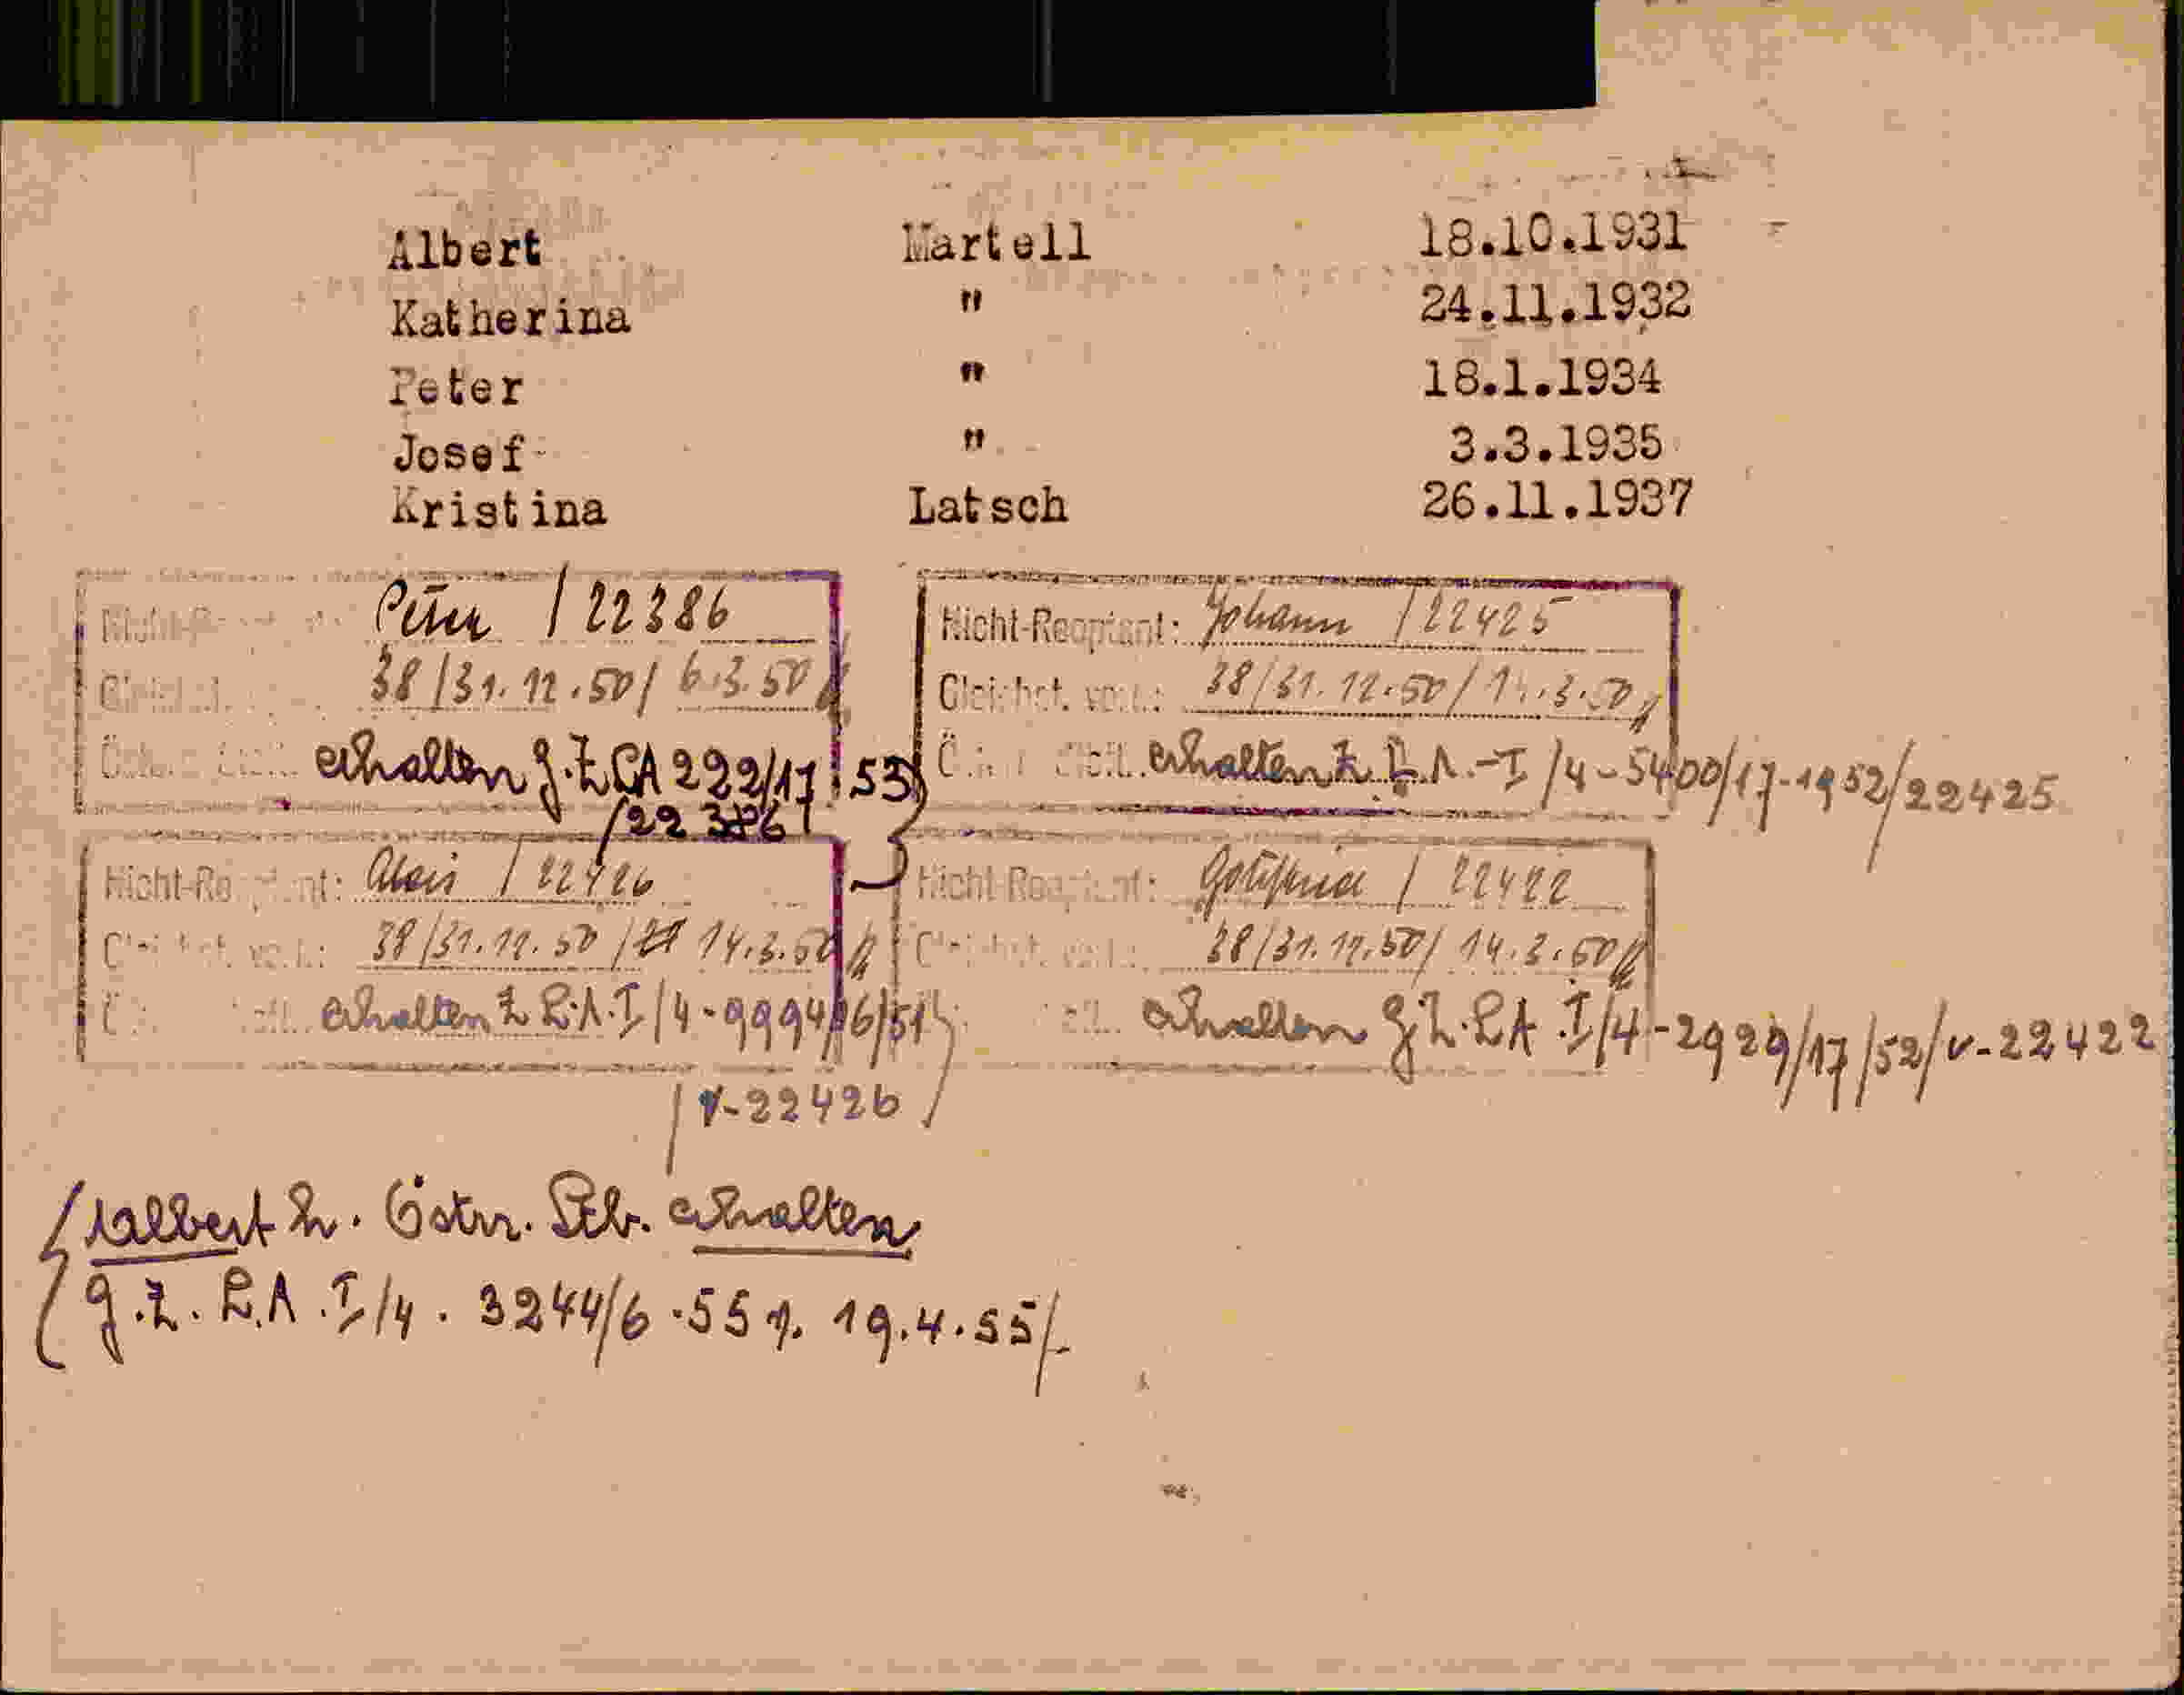 Albert Martell 18.10.1931
Katherina " 24.11.1932
Peter " 18.1.1934
Josef " 3.3.1935
Kristina Latsch 26.11.1937
Peter / 22386
38/31.12.50/ 6.3.50
erhalten g.Z. LA 222/17 53
/22386
Nicht-Reoptant: Johann / 22425
Gleichst. 38/31.12.50/ 14.3.50
erhalten Z. L.A.-I/4-5400/17-1952/22425
Nicht-Reoptant: Alois / 22426
38/31.12.50 / 14.3.50
erhalten Z L.A.I/4-9994/16/51
/V-22426
Nicht-Reoptant: Gottfried / 22422
38/31.12.50/ 14.3.50
erhalten g.Z. LA.I/4-2929/17/52/V-22422
Albert h. Östrr. Stb. erhalten
g.Z. L.A.I/4. 3244/6-55 v. 19.4.55/